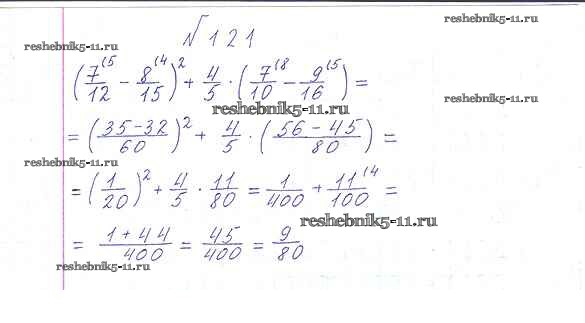 №121
reshebnik5-11.ru
reshebnik5-11.ru
(7/12 ⁽⁵ − 8/15 ⁽⁴)² + 4/5 · (7/10 ⁽⁸ − 9/16 ⁽⁵) =
reshebnik5-11.ru
reshebnik5-11.ru
= ((35−32)/60)² + 4/5 · ((56−45)/80) =
reshebnik5-11.ru
= (1/20)² + 4/5 · 11/80 = 1/400 + 11/100 ⁽⁴ =
reshebnik5-11.ru
= (1+44)/400 = 45/400 = 9/80
reshebnik5-11.ru